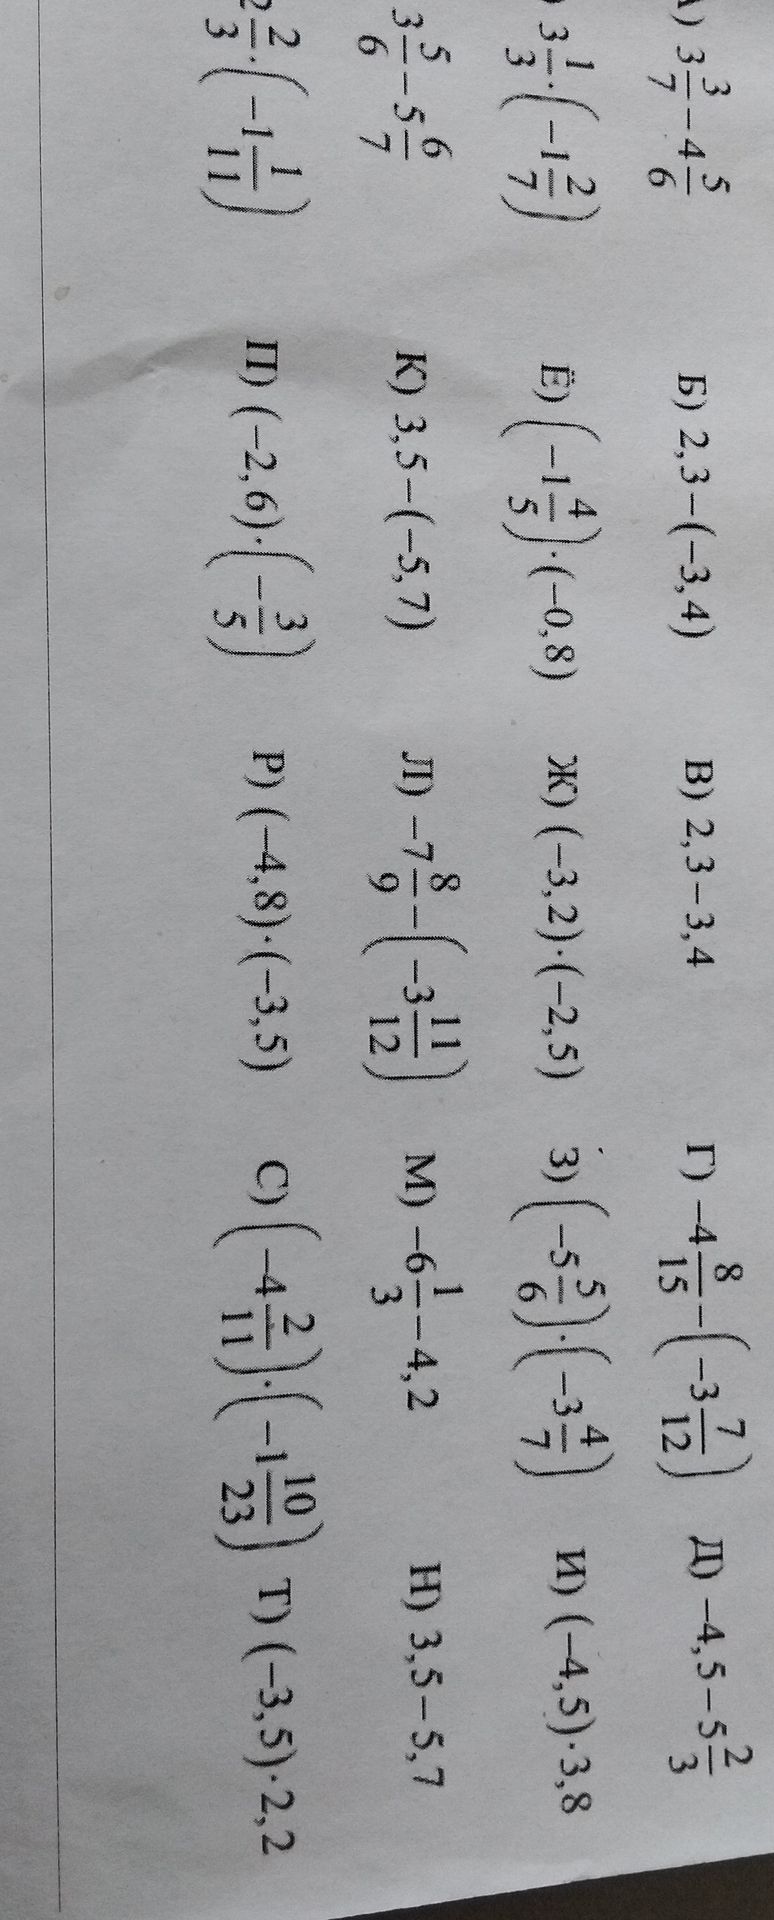 А) 3 3/7 − 4 5/6 Б) 2,3 − (−3,4) В) 2,3 − 3,4 Г) −4 8/15 − (−3 7/12) Д) −4,5 − 5 2/3
) 3 1/3 · (−1 2/7) Ё) (−1 4/5) · (−0,8) Ж) (−3,2) · (−2,5) З) (−5 5/6) · (−3 4/7) И) (−4,5) · 3,8
3 5/6 − 5 6/7 К) 3,5 − (−5,7) Л) −7 8/9 − (−3 11/12) М) −6 1/3 − 4,2 Н) 3,5 − 5,7
2 2/3 · (−1 1/11) П) (−2,6) · (−3/5) Р) (−4,8) · (−3,5) С) (−4 2/11) · (−1 10/23) Т) (−3,5) · 2,2